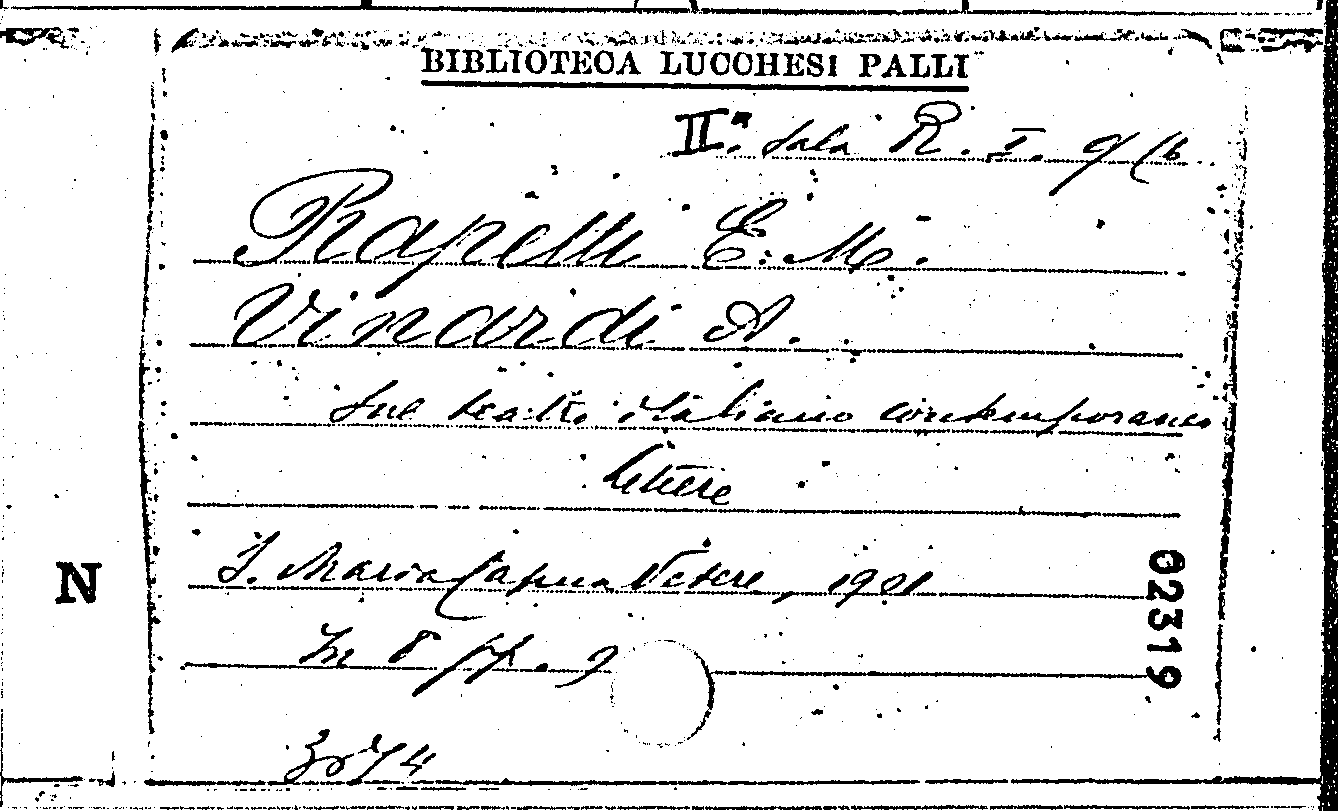 BIBLIOTECA LUCCHESI PALLI
IIª Sala R. I. 9/16
Rapelli E. M.
Vinardi A.
Sul teatro italiano contemporaneo
Lettere
S. Maria Capua Vetere, 1901
N
02319
In 8 pp. 9